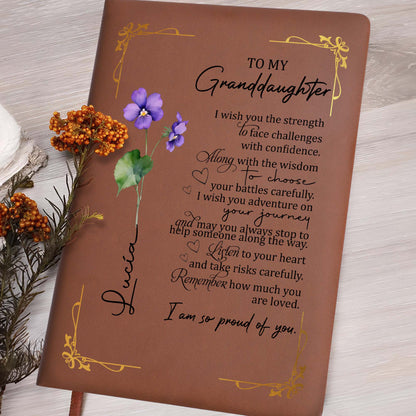 TO MY
Granddaughter
I wish you the strength
to face challenges
with confidence.
Along with the wisdom
to choose
your battles carefully.
I wish you adventure on
your journey
and may you always stop to
help someone along the way.
Listen to your heart
and take risks carefully.
Remember how much you
are loved.
I am so proud of you.
Lucía